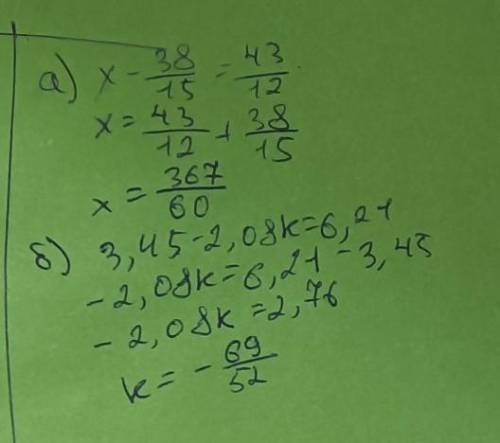 а) x - 38/15 = 43/12
x = 43/12 + 38/15
x = 367/60
б) 3,45-2,08k=6,21
-2,08k=6,21-3,45
-2,08k=2,76
k=-69/52